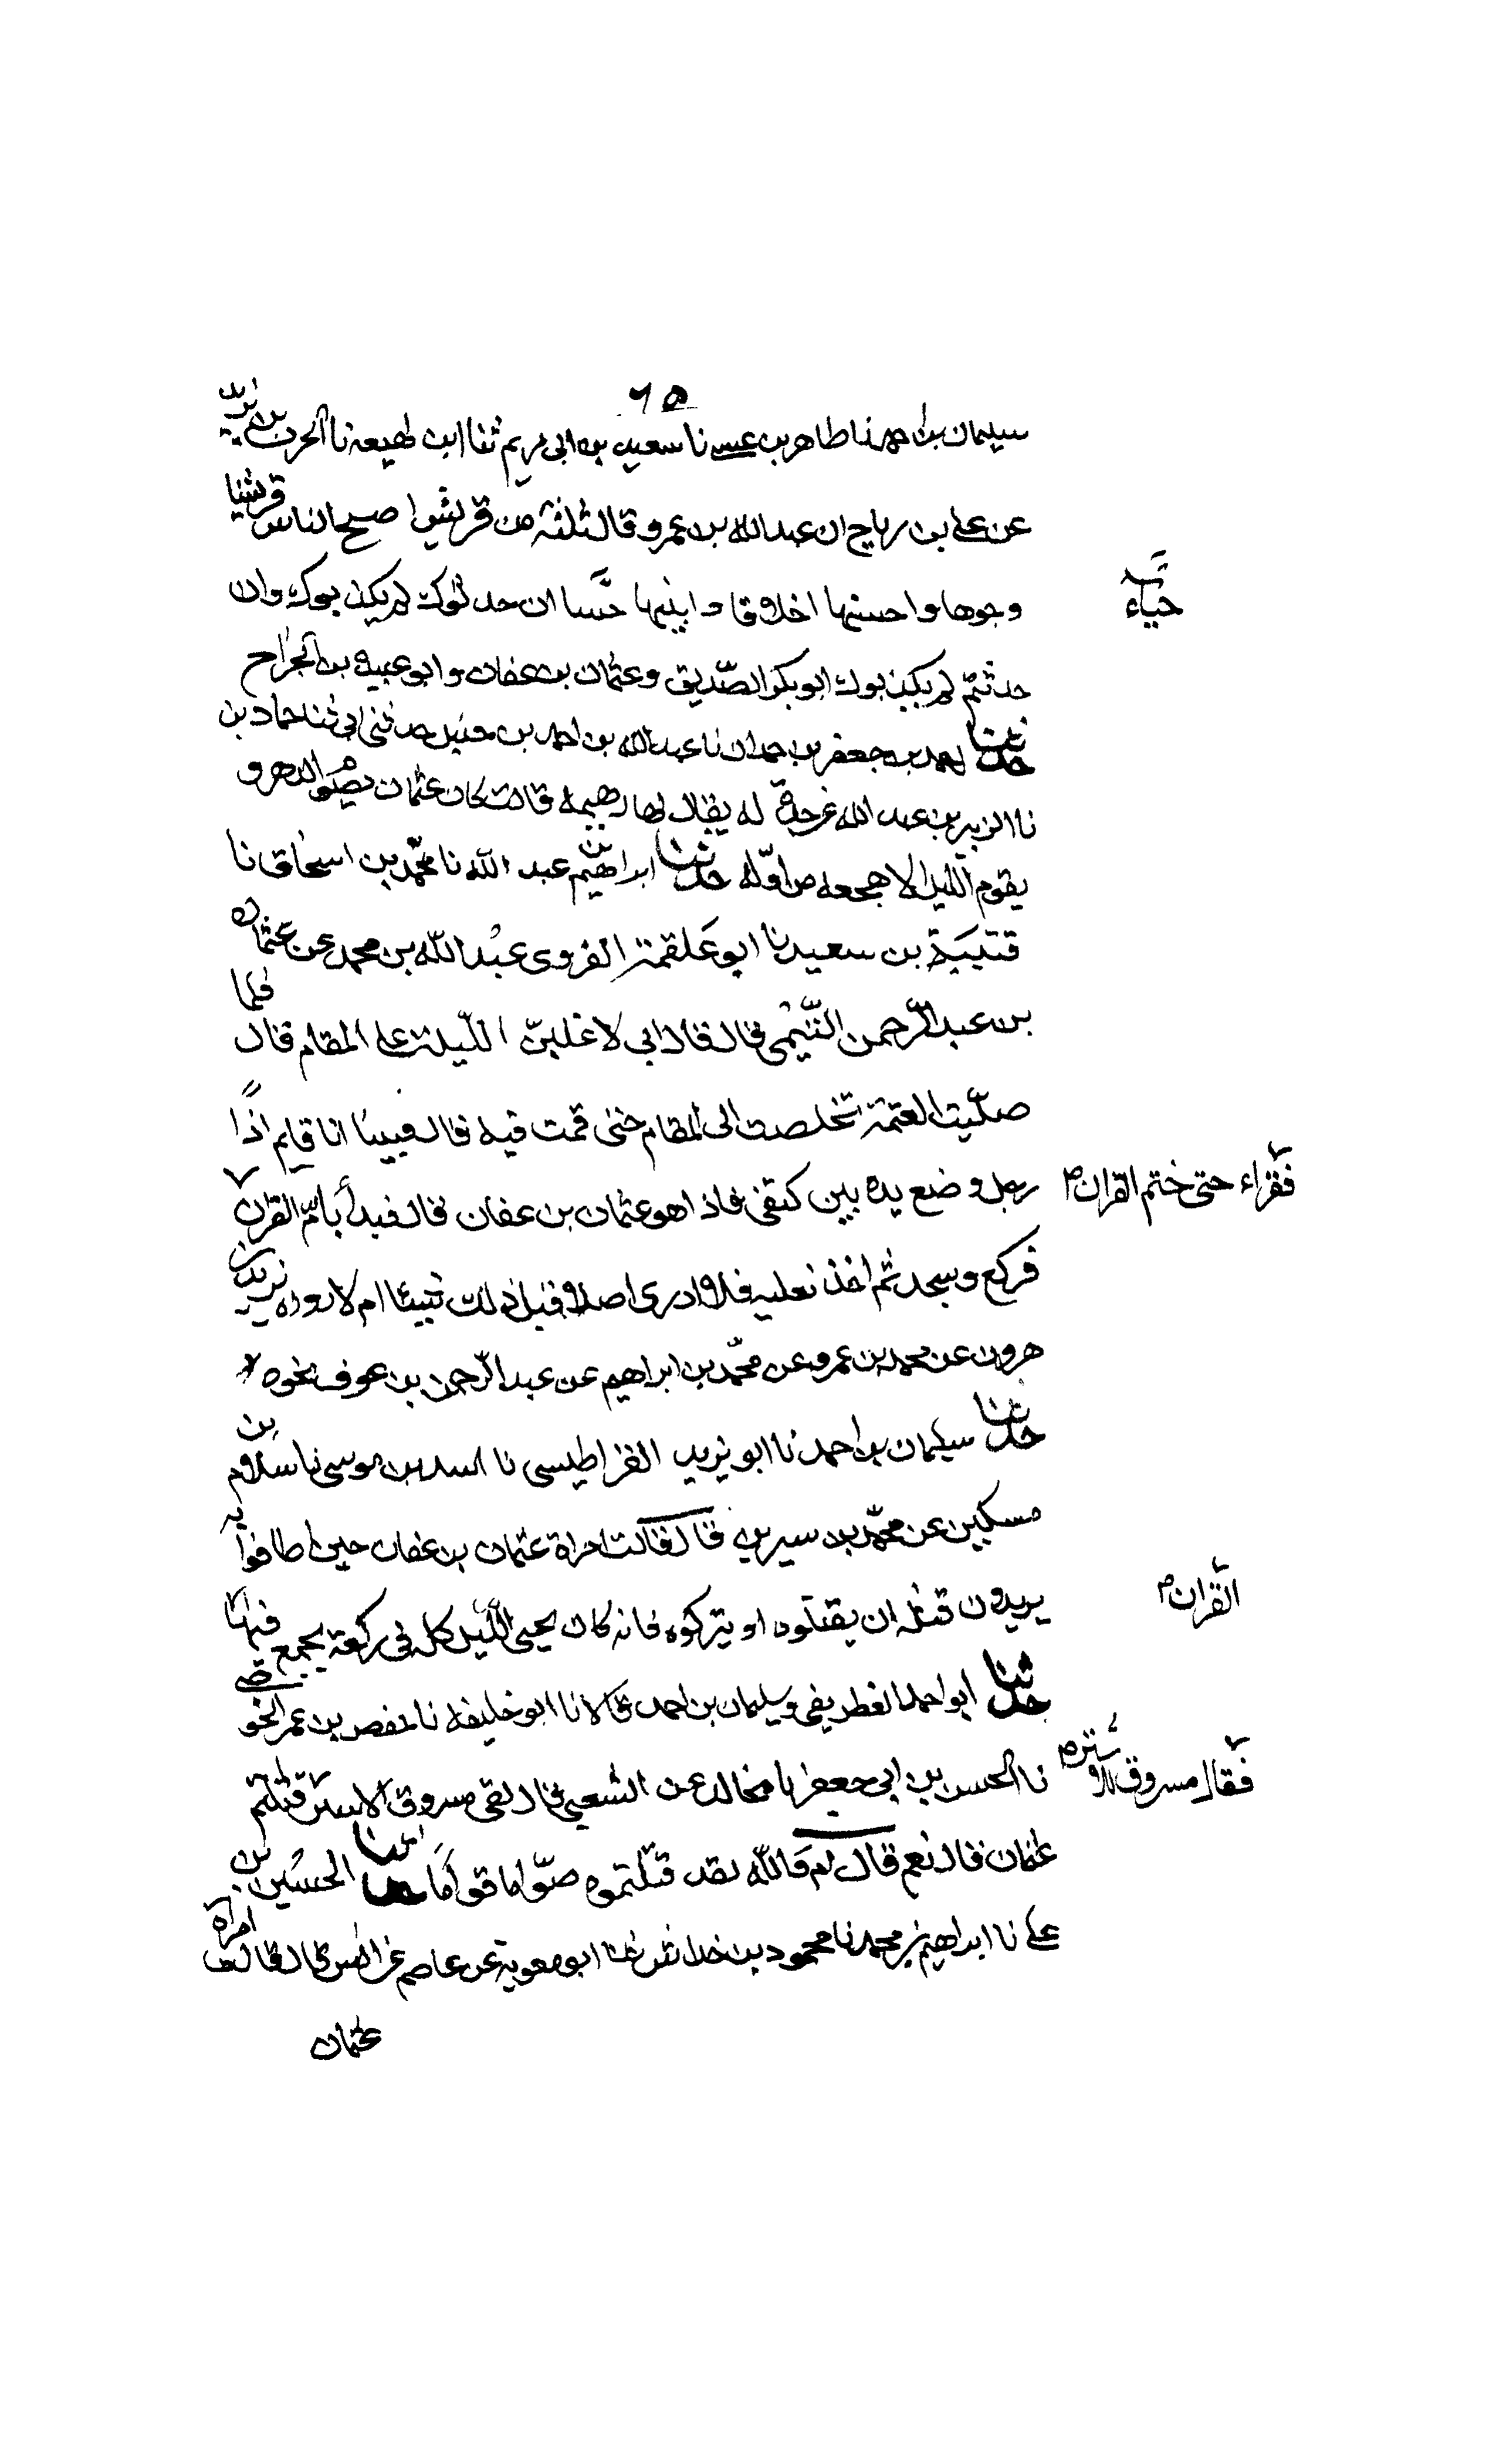 ٦٥
سليمان بن احمد نا طاهر بن عيسى نا سعيد بن ابى مريم ثنا ابن لهيعة نا الحرث بن يزيد
عن على بن رباح ان عبد الله بن عمرو قال ثلثة من قريش اصبح الناس قريشيا
وجوها واحسنها اخلاقا واثبتها حيَّا ان حدثوك لم يكذبوك وان
حيَاء
حدثتم لم يكذبوك ابو بكر الصّديق وعثمان بن عفان وابو عبيدة بن الجراح
حدثنا احمد بن جعفر بن حمدان نا عبد الله بن احمد بن حنبل حدثنى ابى ثنا حماد بن
نا الزبير بن عبد الله عن جدة له يقال لها رهيمه قالت كان عثمان يصوم الدهر و
يقوم الليل الا هجعه من اوّله حدثنا ابراهيم بن عبد الله نا محمّد بن اسحاق نا
قتيبَة بن سعيد نا ابو عَلقمة الفروى عبْد الله بن محمد عن عثمان
بن عبد الرّحمن التَّيْمى قال قال ابى لاغلبنّ الليلة على المقام قال فلما
صلّيت العتمة تخلصت الى المقام حتى قمت فيه قال فبينا انا قايم اذًا
رجل وضع يده بين كتفى فاذا هو عثمان بن عفان قال فبدأ بامّ القران
فقراء حتى ختم القران م
فركع وسجد ثم اخذ نعليه فلا ادرى اصلا قبل ذلك شيئا ام لا رواه يزيد بن
هرون عن محمد بن عمرو عن محمّد بن ابراهيم عن عبد الرّحمن بن عوف نحوه
حدثنا سليمان بن احمد نا ابو يزيد القراطيسى نا اسد بن موسى نا سلام بن
مسكين عن محمّد بن سيرين قال قالت امراة عثمان بن عفان حين اطافوا به
يريدون قتله ان يقتلوه او يتركوه فانه كان يحيى اللّيل كله فى ركعة يجمع فيها
القران م
حدثنا ابو احمد الغطريفى وسليمان بن احمد قالا نا ابو خليفة نا حفص بن عمر الحوضى
نا الحسن بن ابى جعفر نا مجالد عن الشعبى قال لقى مسروق الاشتر قتلتم
فقال مسروق للاشتر م
عثمان قال نعم قال ام والله لقد قتلتموه صوّاما قوامًا حدثنا الحسين بن
على نا ابراهيم بن محمد نا محمود بن خداش نا ابو معوية عن عاصم عن انس قال قالت امراة
عثمان